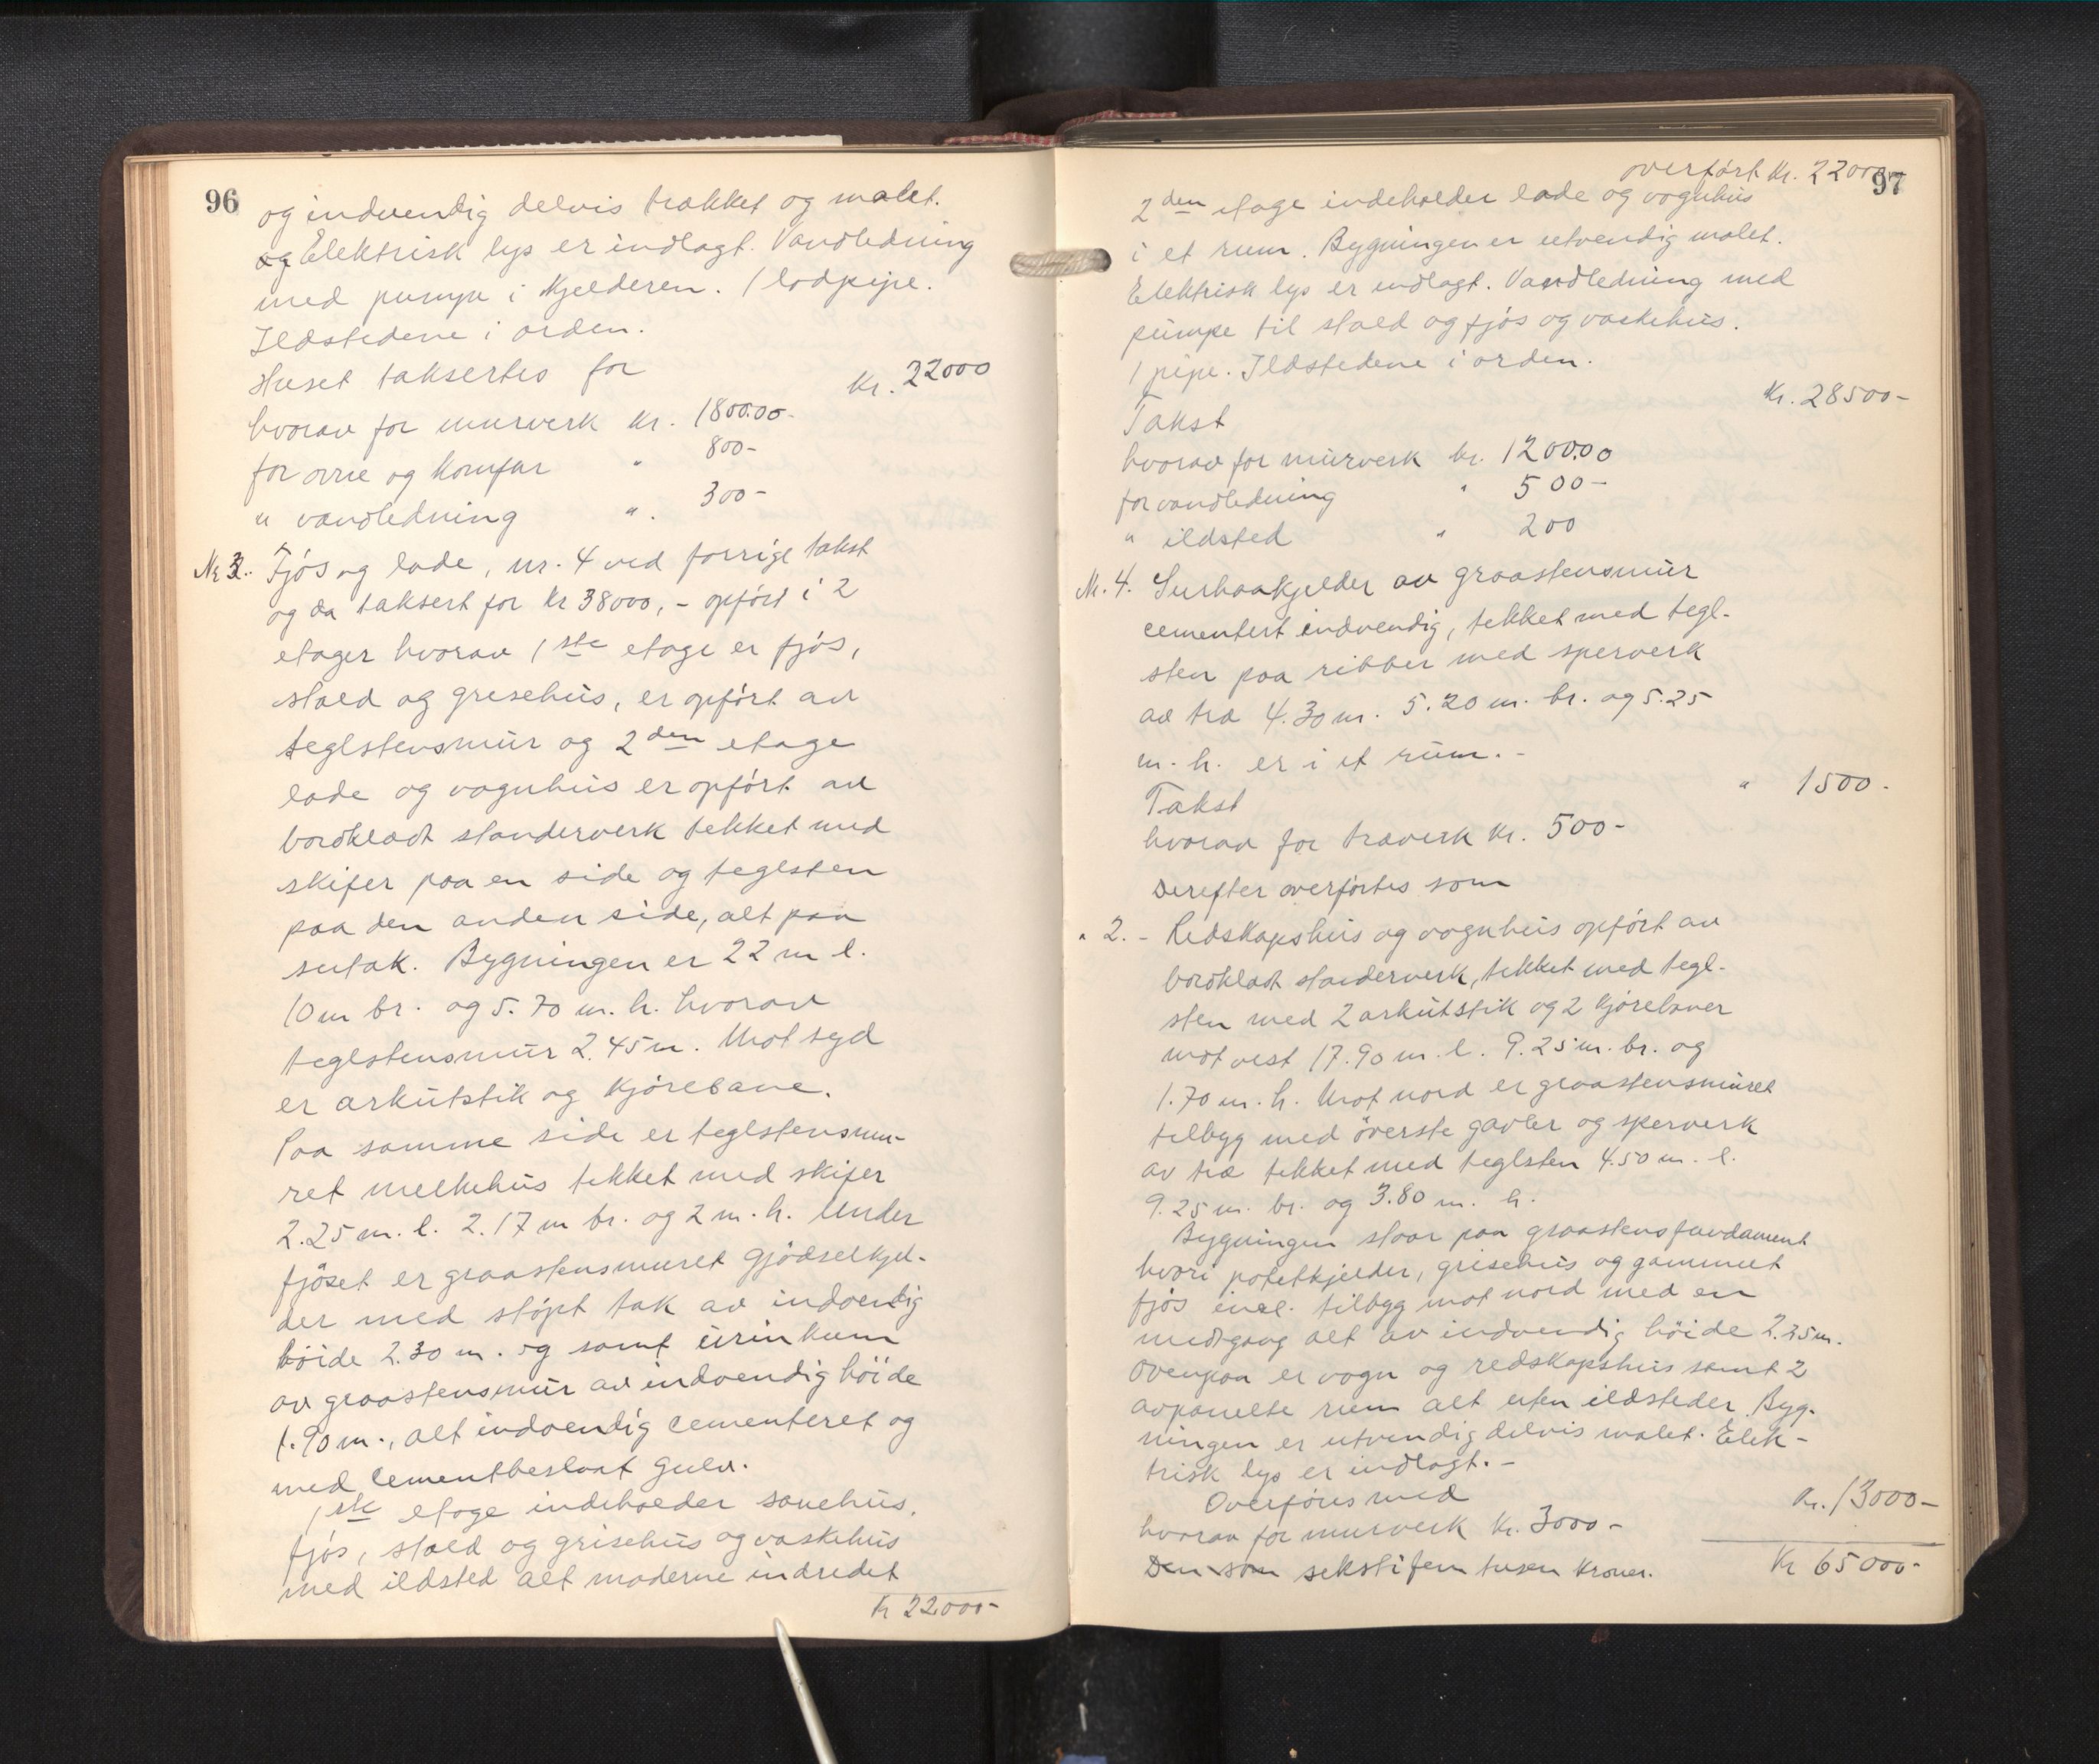 96
og indvendig delvis trækket og malet.
og Elektrisk lys er indlagt. Vandledning
med pumpe i kjelderen. 1 lodpipe.
Ildstedene i orden.
Huset taksertes for
Kr. 22000
hvorav for murverk Kr. 1800.00-
for ovne og Komfur " 800-
" vandledning " 300-
Nr 3. Fjøs og lade, nr. 4 ved forrige takst
og da taksert for kr 38000,- opført i 2
etager hvorav 1ste etage er fjøs,
stald og grisehus, er opført av
teglstensmur og 2den etage
lade og vognhus er opført av
bordklædt standerverk tekket med
skifer paa en side og teglsten
paa den anden side, alt paa
sutak. Bygningen er 22 m l.
10 m br. og 5.70 m. h. hvorav
teglstensmur 2.45 m. Mot syd
er arkutstik og Kjørebane.
Paa samme side er teglstensmu-
ret melkehus tekket med skifer
2.25 m. l. 2.17 m br. og 2 m. h. Under
fjøset er graastensmuret gjødselkjel-
der med støpt tak av indvendig
høide 2.30 m. og samt urinkum
av graastensmur av indvendig høide
1.90 m., alt indvendig cementeret og
med cementbeslaat gulv.
1ste etage indeholder sauehus,
fjøs, stald og grisehus og vaskehus
med ildsted alt moderne indredet
Kr 22000-
overført Kr. 22000-
97
2den etage indeholder lade og vognhus
i et rum. Bygningen er utvendig malet.
Elektrisk lys er indlagt. Vandledning med
pumpe til stald og fjøs og vaskehus.
1 pipe. Ildstedene i orden.
Takst
Kr. 28500-
hvorav for murverk kr. 12000.00
for vandledning " 500-
" ildsted " 200
Nr. 4. Surhaakjelder av graastensmur
cementert indvendig, tekket med tegl-
sten paa ribber med sperverk
av træ 4.30 m. 5.20 m. br. og 5.25
m. h. er i et rum.-
Takst
" 1500.-
hvorav for træverk Kr. 500-
Derefter overførtes som
" 2. - Redskapshus og vognhus opført av
bordklædt standerverk, tekket med tegl-
sten med 2 arkutstik og 2 kjørebaner
mot vest 17.90 m. l. 9.25 m. br. og
1.70 m. h. Mot nord er graastensmuret
tilbygg med øverste gavler og sperverk
av træ tekket med teglsten 4.50 m. l.
9.25 m. br. og 3.80 m. h.
Bygningen staar paa graastensfundament
hvori potetkjelder, grisehus og gammelt
fjøs incl. tilbygg mot nord med en
nedgang alt av indvendig høide 2.25 m.
Ovenpaa er vogn og redskapshus samt 2
avpanelte rum alt uten ildsteder. Byg-
ningen er utvendig delvis malet. Elek-
trisk lys er indlagt.-
Overføres med
Kr. 13000-
hvorav for murverk Kr. 3000-
sekstifem tusen kroner.
Kr 65000-